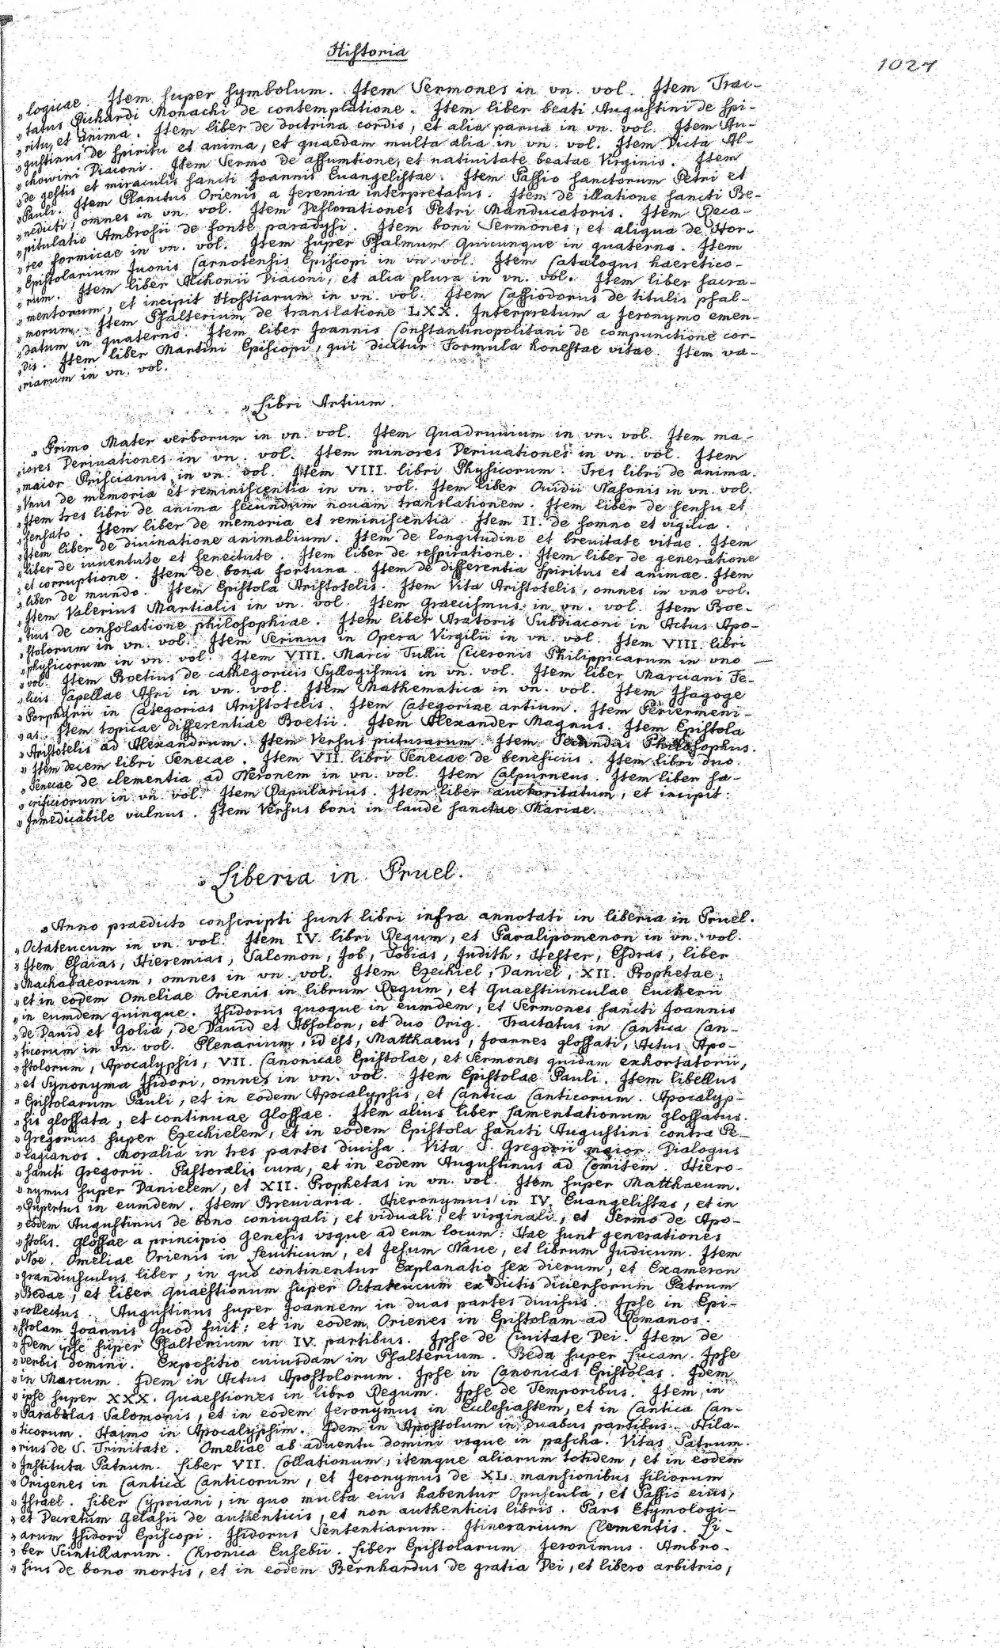 Historia
1027
„logicae. Item super symbolum. Item Sermones in vn. vol. Item Trac-
„tatus Richardi Monachi de contemplatione. Item liber beati Augustini de spi-
„ritu, et anima. Item liber de doctrina cordis, et alia parua in vn. vol. Item Au-
„gustinus de spiritu et anima, et quaedam multa alia in vn. vol. Item Dicta Al-
„chovini Diaconi. Item Sermo de assumtione, et natiuitate beatae Virginis. Item
„de gestis et miraculis sancti Joannis Euangelistae. Item Passio sanctorum Petri et
„Pauli. Item Planctus Orienis a Jeremia interpretatus. Item de illatione sancti Be-
„nedicti, omnes in vn. vol. Item Deflorationes Petri Manducatoris. Item Reca-
„pitulatio Ambrosii de fonte paradysi. Item boni Sermones, et aliqua de Hor-
„reo formicae in vn. vol. Item super Psalmum Quicunque in quaterno. Item
„Epistolarium Iuonis Carnotensis Episcopi in vn. vol. Item Catalogus haeretico-
„rum. Item liber Alchonii Diaconi, et alia plura in vn. vol. Item liber sacra-
„mentorum, et incipit Hostiarum in vn. vol. Item Cassiodorus de titulis psal-
„morum. Item Psalterium de translatione LXX. Interpretum a Jeronymo emen-
„datum in quaterno. Item liber Joannis Constantinopolitani de compunctione cor-
„dis. Item liber Martini Episcopi, qui dicitur Formula honestae vitae. Item va-
„riarum in vn. vol.
„Libri Artium.
„Primo Mater verborum in vn. vol. Item Quadruuium in vn. vol. Item ma-
„iores Deriuationes in vn. vol. Item minores Deriuationes in vn. vol. Item
„maior Priscianus in vn. vol. Item VIII. libri Physicorum. Tres libri de anima.
„Vnus de memoria et reminiscentia in vn. vol. Item liber Ouidii Nasonis in vn. vol.
„Item tres libri de anima secundum nouam translationem. Item liber de sensu et
„sensato. Item liber de memoria et reminiscentia. Item II. de somno et vigilia.
„Item liber de diuinatione animalium. Item de longitudine et breuitate vitae. Item
„liber de iuuentute et senectute. Item liber de respiratione. Item liber de generatione
„et corruptione. Item de bona fortuna. Item de differentia spiritus et animae. Item
„liber de mundo. Item Epistola Aristotelis. Item Vita Aristotelis, omnes in vno vol.
„Item Valerius Martialis in vn. vol. Item Graecismus in vn. vol. Item Boe-
„tius de consolatione philosophiae. Item liber Aratoris Subdiaconi in Actus Apo-
„stolorum in vn. vol. Item Serinus in Opera Virgilii in vn. vol. Item VIII. libri
„physicorum in vn. vol. Item VIII. Marci Tullii Ciceronis Philippicarum in vno
„vol. Item Boetius de cathegoricis Syllogismis in vn. vol. Item liber Marciani Fe-
„licis Capellae Afri in vn. vol. Item Mathematica in vn. vol. Item Isagoge
„Porphyrii in Categorias Aristotelis. Item Categoriae artium. Item Periermeni-
„as. Item topicae differentiae Boetii. Item Alexander Magnus. Item Epistola
„Aristotelis ad Alexandrum. Item Versus picturarum. Item Secundus Philosophus.
„Item decem libri Senecae. Item VII. libri Senecae de beneficiis. Item libri duo
„Senecae de clementia ad Neronem in vn. vol. Item Calpurneus. Item liber sa-
„crificiorum in vn. vol. Item Papularius. Item liber auctoritatum, et incipit:
„Inmedicabile vulnus. Item Versus boni in laude sanctae Mariae.
„Liberia in Pruel.
„Anno praedicto conscripti sunt libri infra annotati in liberia in Pruel.
„Octateucum in vn. vol. Item IV. libri Regum, et Paralipomenon in vn. vol.
„Item Esaias, Hieremias, Salomon, Job, Tobias, Judith, Hester, Esdras, liber
„Machabaeorum, omnes in vn. vol. Item Ezechiel, Daniel, XII. Prophetae;
„et in eodem Omeliae Orienis in librum Regum, et Quaestiunculae Eucherii
„in eumdem quinque. Isidorus quoque in eumdem, et Sermones sancti Joannis
„de Dauid et Golia, de Dauid et Absolon, et duo Orig. Tractatus in Cantica Can-
„ticorum in vn. vol. Plenarium, id est, Matthaeus, Joannes glossati, Actus Apo-
„stolorum, Apocalypsis, VII. Canonicae Epistolae, et Sermones quidam exhortatorii,
„et Synonyma Isidori, omnes in vn. vol. Item Epistolae Pauli. Item libellus
„Epistolarum Pauli, et in eodem Apocalypsis, et Cantica Canticorum. Apocalyp-
„sis glossata, et continuae Glossae. Item alius liber Lamentationum glossatus.
„Gregorius super Ezechielem, et in eodem Epistola sancti Augustini contra Pe-
„lagianos. Moralia in tres partes diuisa. Vita S. Gregorii maior. Dialogus
„sancti Gregorii. Pastoralis cura, et in eodem Augustinus ad Comitem. Hiero-
„nymus super Danielem, et XII. Prophetas in vn. vol. Item super Matthaeum.
„Rupertus in eumdem. Item Breuiaria. Hieronymus in IV. Euangelistas, et in
„eodem Augustinus de bono coniugali, et viduali, et virginali, et Sermo de Apo-
„stolis. Glossae a principio Genesis vsque ad eum locum: Hae sunt generationes
„Noe. Omeliae Orienis in Leuiticum, et Jesum Naue, et librum Judicum. Item
„grandiusculus liber, in quo continentur Explanatio sex dierum, et Exameron
„Bedae, et liber Quaestionum super Octateucum ex dictis diuersorum Patrum
„collectus. Augustinus super Joannem in duas partes diuisus. Ipse in Epi-
„stolam Joannis Quod fuit: et in eodem Orienes in Epistolam ad Romanos.
„Idem ipse super Psalterium in IV. partibus. Ipse de Ciuitate Dei. Item de
„verbis domini. Expositio cuiusdam in Psalterium. Beda super Lucam. Ipse
„in Marcum. Idem in Actus Apostolorum. Ipse in Canonicas Epistolas. Idem
„ipse super XXX. Quaestiones in libro Regum. Ipse de Temporibus. Item in
„Parabolas Salomonis, et in eodem Jeronymus in Ecclesiasten, et in Cantica Can-
„ticorum. Haimo in Apocalypsim. Idem in Apostolum in duabus partibus. Hila-
„rius de S. Trinitate. Omeliae ab aduentu domini vsque in pascha. Vitas Patrum.
„Instituta Patrum. Liber VII. Collationum, itemque aliarum totidem, et in eodem
„Origenes in Cantica Canticorum, et Jeronymus de XL. mansionibus filiorum
„Israel. Liber Cypriani, in quo multa eius habentur Opuscula, et Passio eius,
„et Decretum Gelasii de authenticis, et non authenticis libris. Pars Etymologi-
„arum Isidori Episcopi. Isidorus Sententiarum. Itinerarium Clementis. Li-
„ber Scintillarum. Chronica Eusebii. Liber Epistolarum Jeronimus. Ambro-
„sius de bono mortis, et in eodem Bernhardus de gratia Dei, et libero arbitrio,